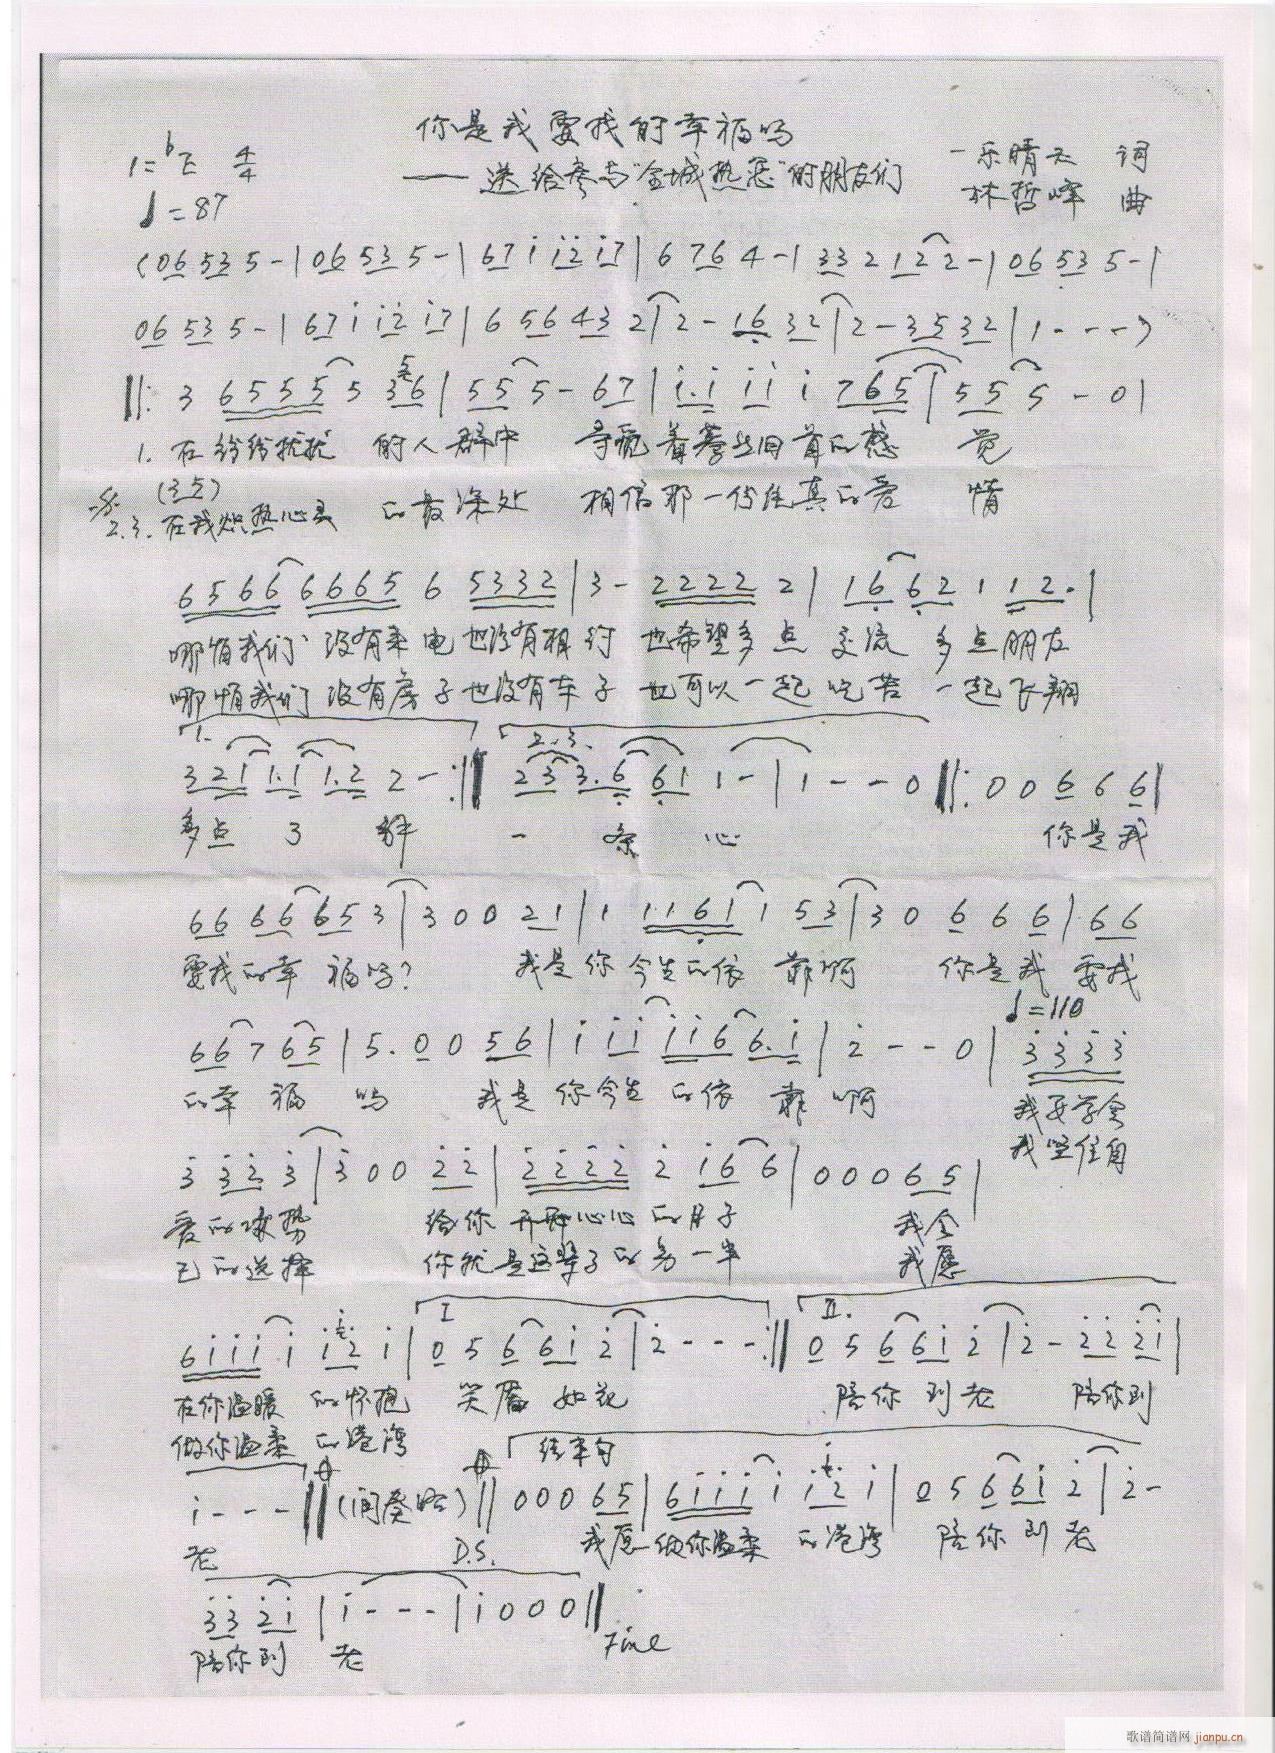 你是我要找的幸福吗
——送给参与"全城热恋"的朋友们
1=bE 4/4
♩=87
一乐晴天 词
林哲峰 曲
(06535-|06535-|67i i2 i7|6764-|332122-|06535-|
06535-|67i i2 i7|656432|2-1632|2-3532|1---)
||: 3 6555 5 5 36|555-67|i.i ii i 765|555-0|
1. 在纷纷扰扰 的人群中 寻觅着蓦然回首的感觉
2.3. 在我炽热心灵 的最深处 相信那一份纯真的爱情
6566 6665 6 5332|3-2222 2|16 62 1 12.|
哪怕我们 没有来电也没有相约 也希望多点交流 多点朋友
哪怕我们没有房子也没有车子 也可以一起吃苦 一起飞翔
1. 2.3.
321 1.1 1.2 2-:|| 23 3.6 61 1-|1--0||: 006 6 6|
多点了解 一条心 你是我
66 66 653|30021|1 1161 1 53|30 6 6 6|66
要找的幸福吗? 我是你今生的依靠啊 你是我 要找
♩=110
66 7 65|5.0056|i ii ii66.i|2--0|3333
的幸福吗 我是你今生的依靠啊 我要学会
我坚信自
3 32 3|30022|2222 2 i6 6|00065|
爱的攻势 给你开开心心的日子 我会
己的选择 你就是这辈子的另一半 我愿
I II.
6iii i i2 i|05 6 6i 2|2---:||05 6 6i 2|2-22 2i|
在你温暖的怀抱 笑眉如花 陪你到老 陪你到
做你温柔的港湾
结束句
i---||(间奏略)||00065|6iii i i2 i|05 6 6i 2|2-
老 D.S. 我愿做你温柔的港湾 陪你到老
33 2i|i---|i000||
陪你到老 Fine
歌谱简谱网 jianpu.cn